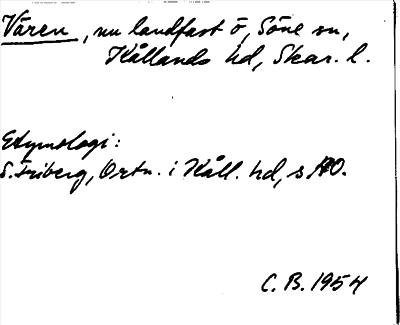 Våren, nu landfast ö, Söne sn,
Kållands hd, Skar. l.
Etymologi:
S. Friberg, Ortn. i Kåll. hd, s.
C. B. 1954